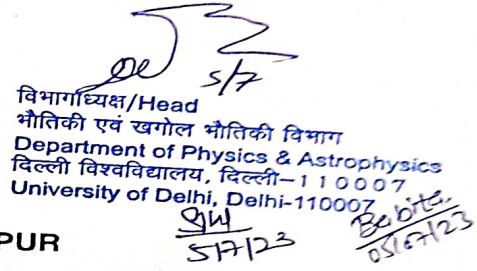 5/7
विभागाध्यक्ष/Head
भौतिकी एवं खगोल भौतिकी विभाग
Department of Physics & Astrophysics
दिल्ली विश्वविद्यालय, दिल्ली–110007
University of Delhi, Delhi-110007
5/7/23
Babita
05/07/23
PUR